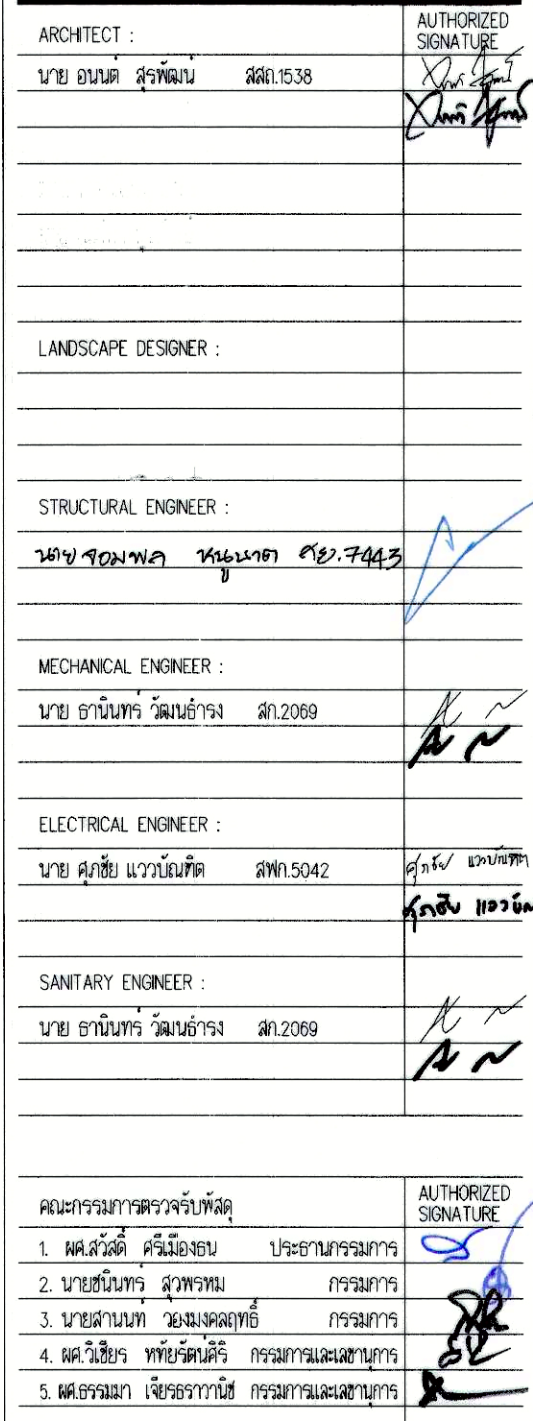 ARCHITECT :
AUTHORIZED
SIGNATURE
นาย อนนต์ สุรพัฒน์ สสถ.1538
LANDSCAPE DESIGNER :
STRUCTURAL ENGINEER :
นาย จอมพล หนูนาค สย.7443
MECHANICAL ENGINEER :
นาย ธานินทร์ วัฒนธำรง สก.2069
ELECTRICAL ENGINEER :
นาย ศุภชัย แววบัณฑิต สฟก.5042
ศุภชัย แววบัณฑิต
ศุภชัย
SANITARY ENGINEER :
นาย ธานินทร์ วัฒนธำรง สก.2069
คณะกรรมการตรวจรับพัสดุ
AUTHORIZED
SIGNATURE
1. ผศ.สวัสดิ์ ศรีเมืองธน ประธานกรรมการ
2. นายชนินทร์ สุวพรหม กรรมการ
3. นายสานนท์ วยงมงคลฤทธิ์ กรรมการ
4. ผศ.วิเชียร หทัยรัตน์ศิริ กรรมการและเลขานุการ
5. ผศ.ธรรมมา เจียรธราวานิช กรรมการและเลขานุการ